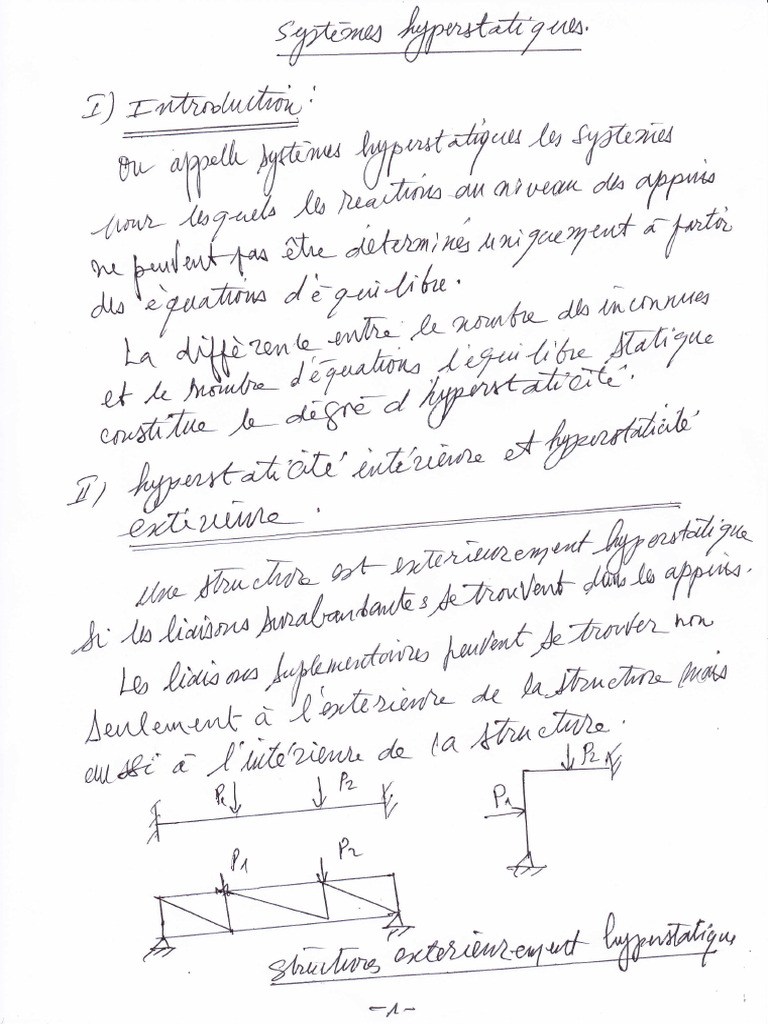 Systèmes hyperstatiques.
I) Introduction :
On appelle systèmes hyperstatiques les systèmes
pour lesquels les reactions au niveau des appuis
ne peuvent pas être déterminés uniquement à partir
des équations d'équilibre.
La différence entre le nombre des inconnues
et le nombre d'équations l'équilibre statique
constitue le dégré d'hyperstaticité.
II) hyperstaticité intérieure et hyperstaticité
extérieure.
Une structure est exterieurement hyperstatique
Si les liaisons surabandantes se trouvent dans les appuis.
Les liaisons suplementaires peuvent se trouver non
seulement à l'exterieure de la structure mais
aussi à l'intérieure de la structure.
P1 P2
P1 P2
P1 P2
structures exterieurement hyperstatique
-1-